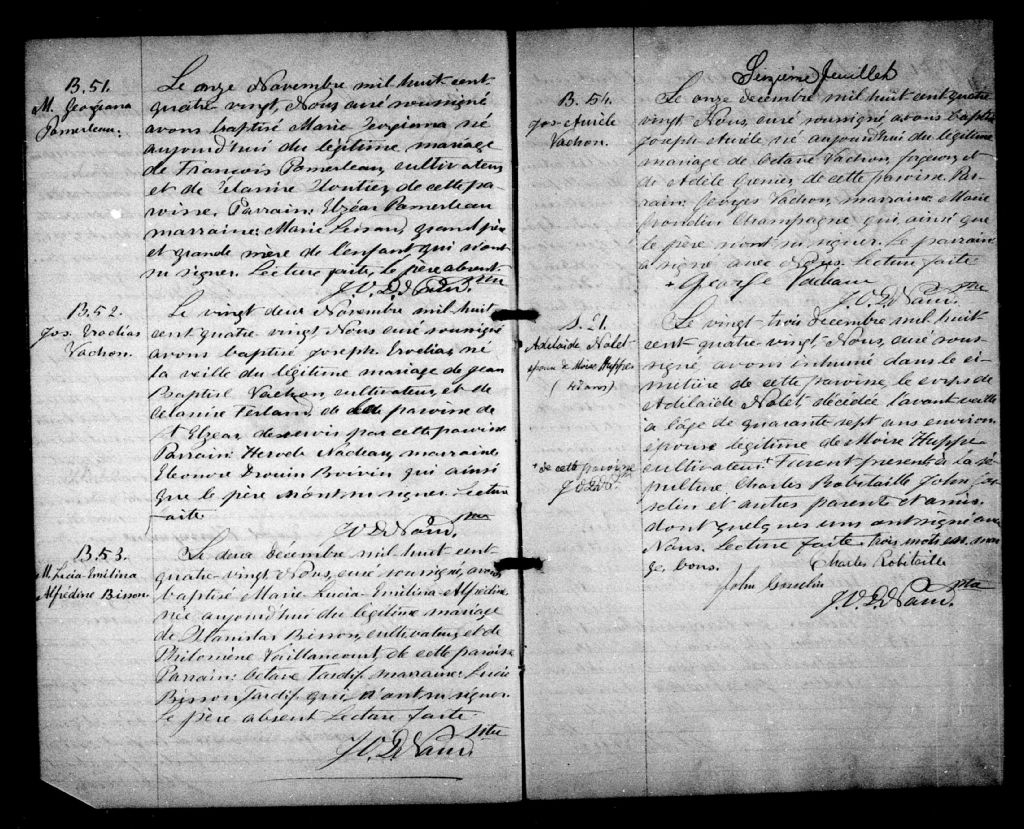 B.51.
M. Georgiana
Pomerleau.
Le onze Novembre mil huit cent
quatre-vingt, Nous, curé soussigné
avons baptisé Marie Georgianna né
aujourd'hui du légitime mariage
de François Pomerleau, cultivateur,
et de Zéanire Cloutier de cette pa-
roisse. Parrain: Elzéar Pomerleau
marraine: Marie Lessard grand père
et grande mère de l'enfant qui n'ont
su signer. Lecture faite, le père absent.
Ptre
B.52.
Jos. Erodias
Vachon.
Le vingt deux Novembre mil huit
cent quatre vingt Nous curé soussigné
avons baptisé Joseph Erodias, né
la veille du légitime mariage de Jean
Baptist Vachon, cultivateur, et de
Célanire Ferland, de cette paroisse de
St Elzear desservis par cette paroisse
Parrain: Nadeau, marraine
Eleonore Drouin Boivin qui ainsi
que le père n'ont su signer. Lecture
faite.
Ptre
B.53.
M. Lucia-Emilina
Alfrédine Bisson.
Le deux décembre mil huit cent
quatre-vingt, Nous, curé soussigné, avons
baptisé Marie Lucia-Emilina Alfrédine
née aujourd'hui du légitime mariage
de Stanislas Bisson, cultivateur, et de
Philomène Vaillancourt, de cette paroisse
Parrain: Octave Tardif marraine: Lucie
Bisson Tardif qui n'ont su signer.
Le père absent Lecture faite
Ptre
Seizième feuillet
B. 54.
Jos Aurèle
Vachon.
Le onze décembre mil huit cent quatre
vingt Nous, curé soussigné avons baptisé
Joseph Aurèle né aujourd'hui du légitime
mariage de Octave Vachon, forgeron, et
de Adèle Grenier, de cette paroisse. Par-
rain: Georges Vachon, marraine: Marie
Grondin Champagne qui, ainsi que
le père n'ont su signer. Le parrain
a signé avec Nous. Lecture faite
+ George Vachon
Ptre
S. 21.
Adelaide Nolet
epouse de Moise Huppé
(47 ans)
Le vingt-trois decembre mil huit
cent quatre-vingt, Nous, curé sous-
signé, avons inhumé dans le ci-
metière de cette paroisse, le corps de
Adélaide Nolet décédée l'avant veille
à l'âge de quarante sept ans environ
épouse légitime de Moïse Huppé
cultivateur + Furent present à la sé-
pulture Charles Robitaille John Gos-
selin et autres parents et amis
dont quelques uns ont signé avec
Nous. Lecture faite. trois mots en mar-
ge, bons.
+ de cette paroisse
Charles Robitaille
John Gosselin
Ptre